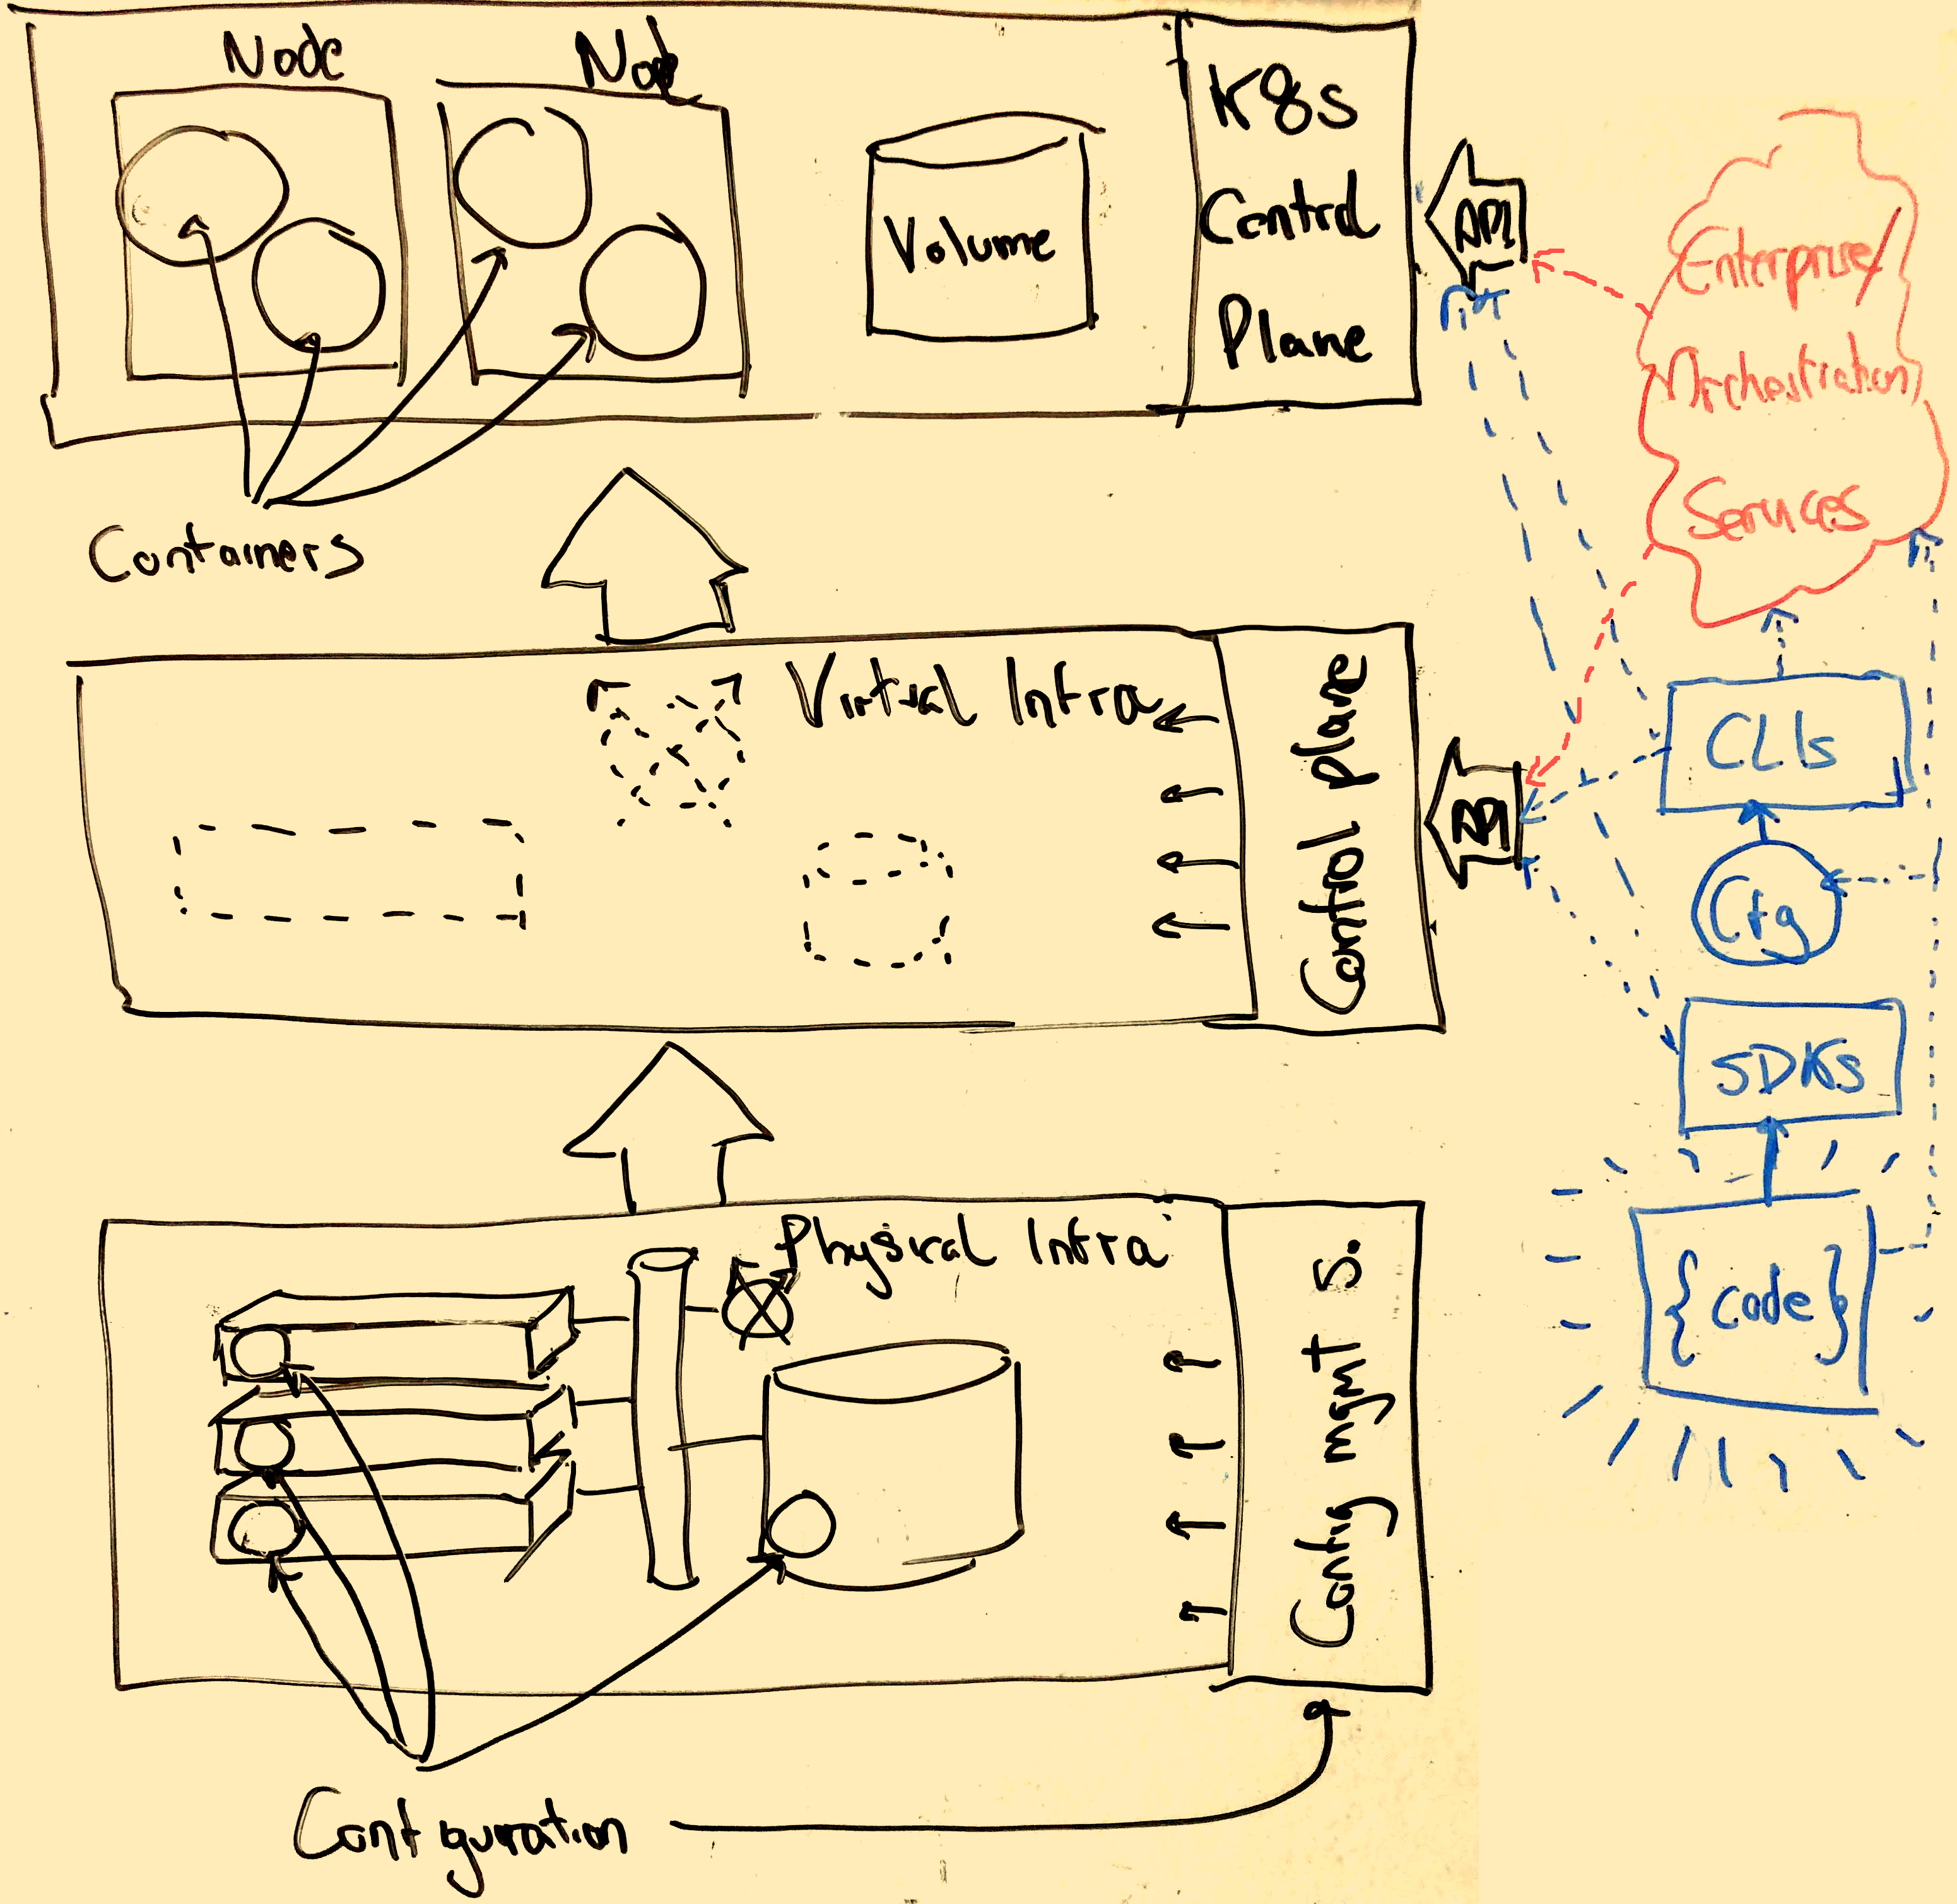 Node
Node
Volume
K8s
Control
Plane
API
Enterprise/
Orchestration
Services
Containers
Virtual Infra
Control plane
API
CLIs
Cfg
SDKs
{code}
Physical Infra
Config mgmt s.
Configuration